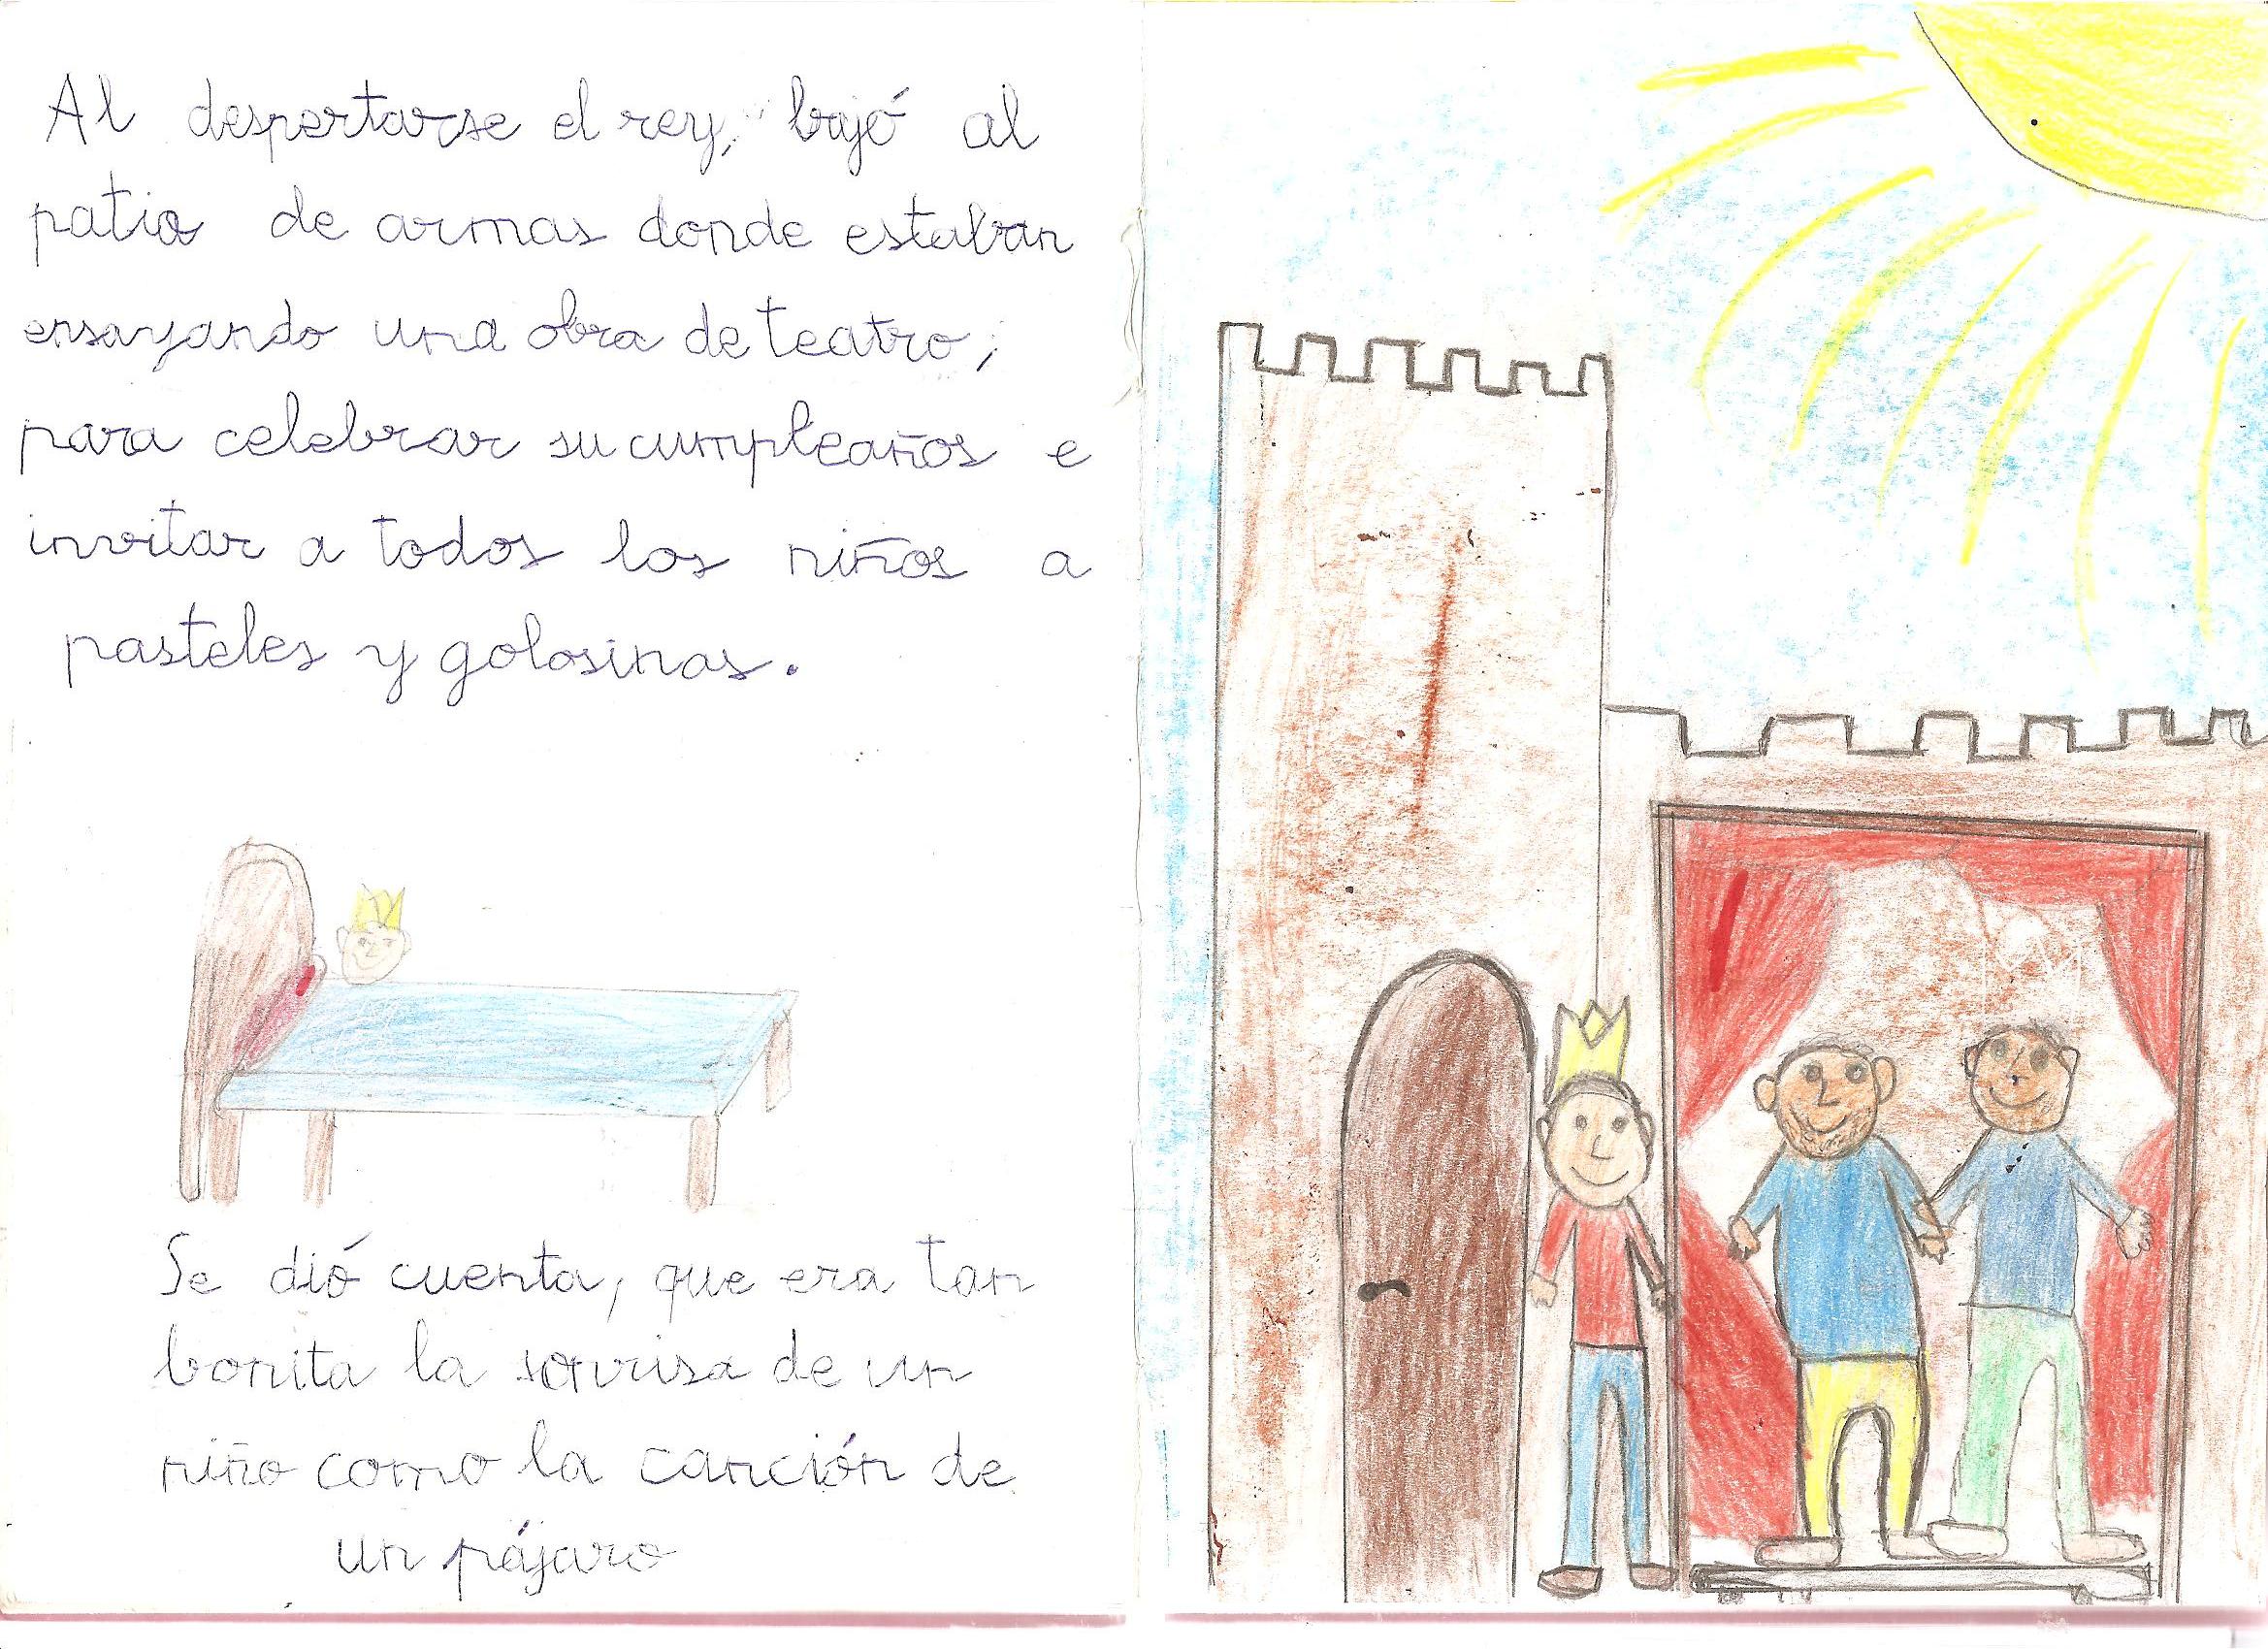 Al despertarse el rey, bajó al
patio de armas donde estaban
ensayando una obra de teatro;
para celebrar su cumpleaños e
invitar a todos los niños a
pasteles y golosinas.
Se dió cuenta, que era tan
bonita la sonrisa de un
niño como la canción de
un pájaro